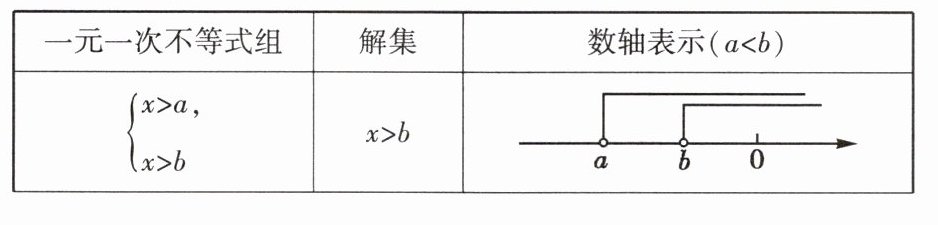 一元一次不等式组 解集 数轴表示(a<b)
x>a,
x>b
x>b
a b 0